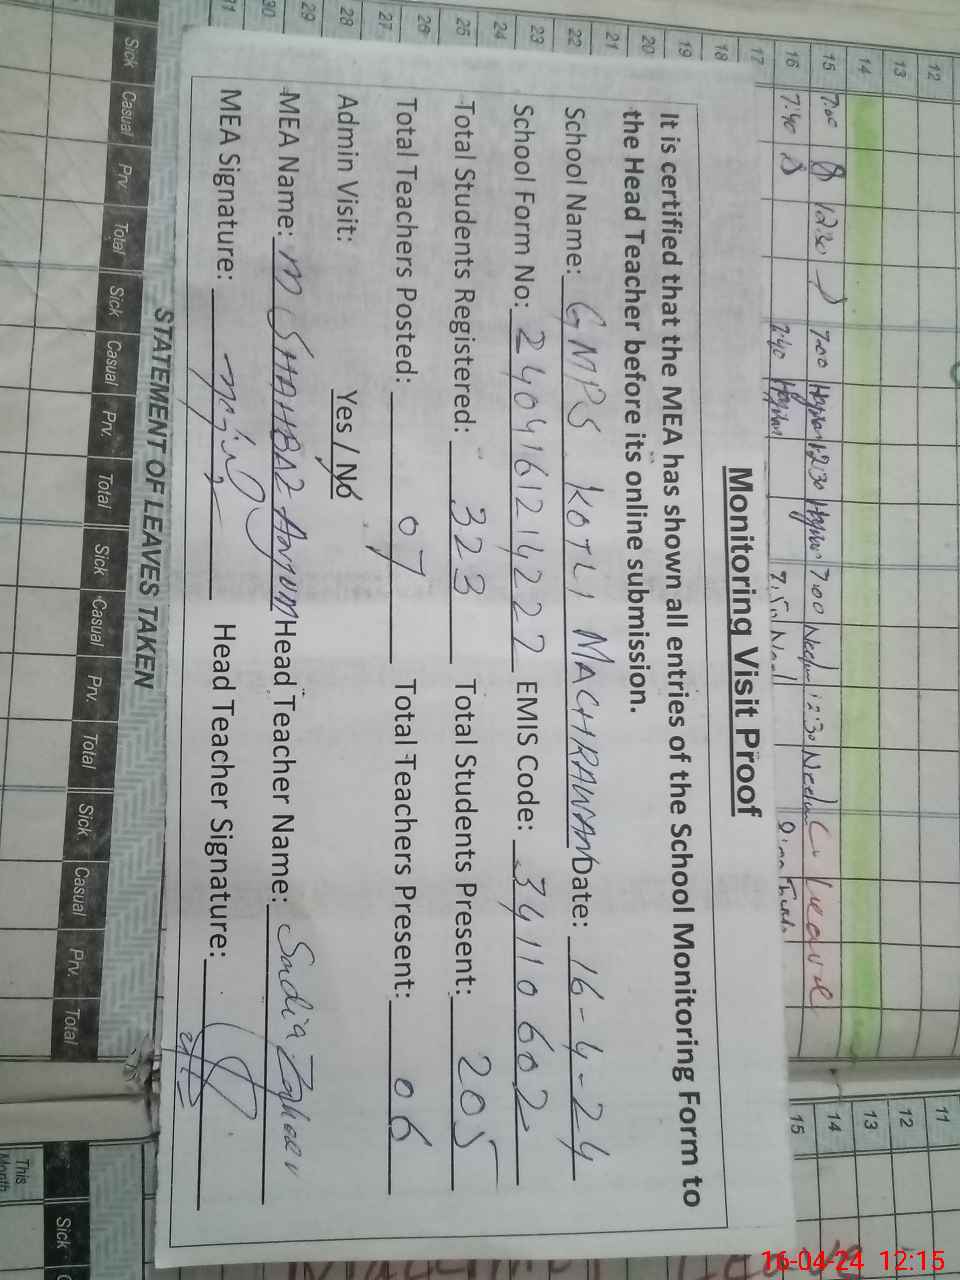 Monitoring Visit Proof
It is certified that the MEA has shown all entries of the School Monitoring Form to
the Head Teacher before its online submission.
School Name: GMPS KOTLI MACHRAWAN Date: 16-4-24
School Form No: 2404161214222 EMIS Code: 34110602
Total Students Registered: 322 Total Students Present: 205
Total Teachers Posted: 07 Total Teachers Present: 06
Admin Visit: Yes / No
MEA Name: M SHAHBAZ Anjum Head Teacher Name: Sadia
MEA Signature: Head Teacher Signature:
STATEMENT OF LEAVES TAKEN
Sick Casual Prv. Total Sick Casual Prv. Total Sick Casual Prv. Total Sick Casual Prv. Total
12
13
14
15 7:00 12:30 7:00 12:30 7:00 12:30 Leave
16 7:40 7:40
17
18
19
20
21
22
23
24
25
26
27
28
29
30
31
11
12
13
14
15
This Month
Sick
16-04-24 12:15